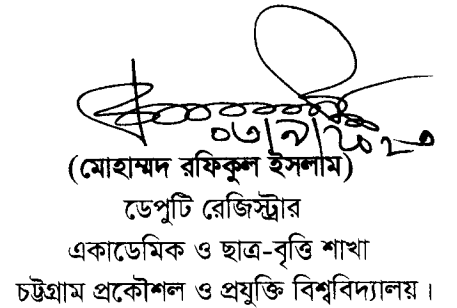 ০৩/৯/২০২০
(মোহাম্মদ রফিকুল ইসলাম)
ডেপুটি রেজিস্ট্রার
একাডেমিক ও ছাত্র-বৃত্তি শাখা
চট্টগ্রাম প্রকৌশল ও প্রযুক্তি বিশ্ববিদ্যালয়।